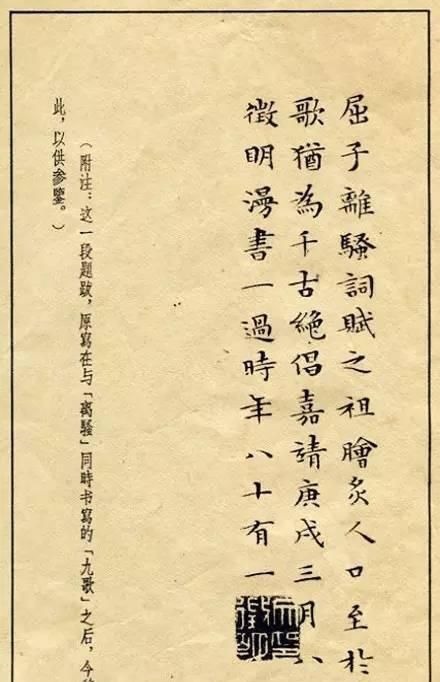 屈子離騷詞賦之祖膾炙人口至於
歌猶為千古絶倡嘉靖庚戌三月
徵明漫書一過時年八十有一
（附注：这一段題跋，原寫在与「离騷」同時书寫的「九歌」之后，今
此，以供参鑒。）